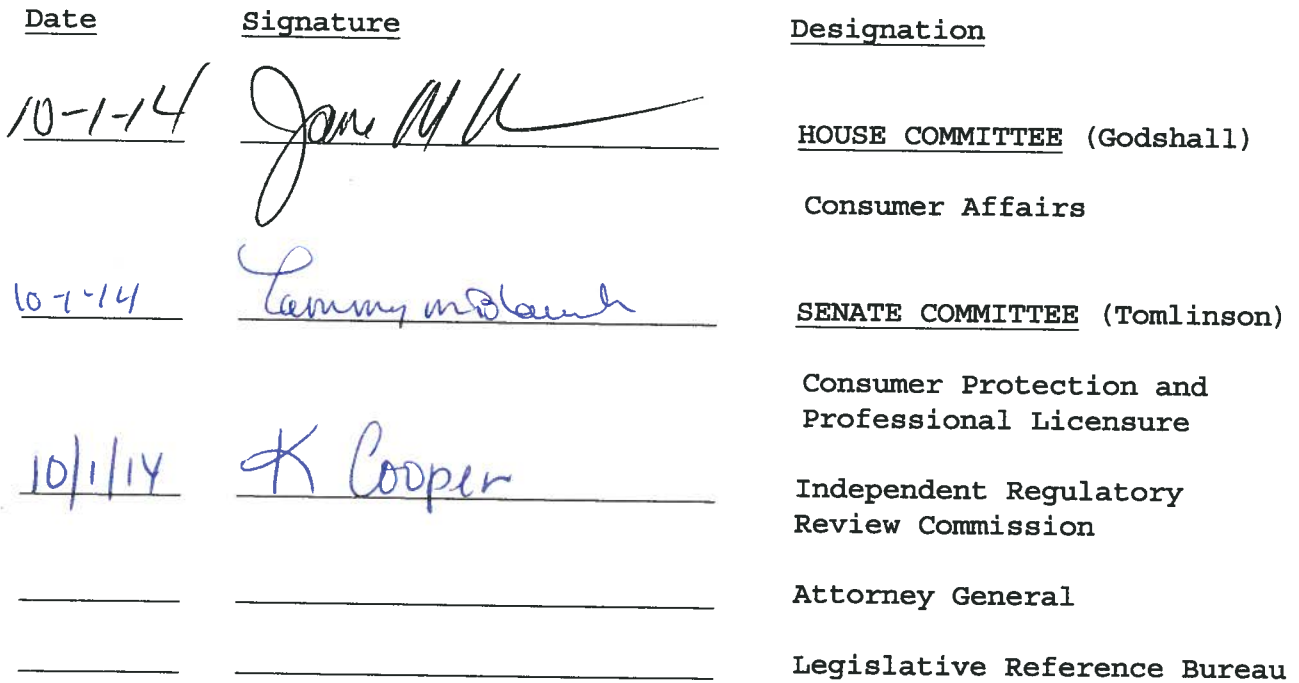 Date Signature Designation
10-1-14 Jane M HOUSE COMMITTEE (Godshall)
Consumer Affairs
10-1-14 Tammy m SENATE COMMITTEE (Tomlinson)
Consumer Protection and
Professional Licensure
10/1/14 K Cooper
Independent Regulatory
Review Commission
Attorney General
Legislative Reference Bureau